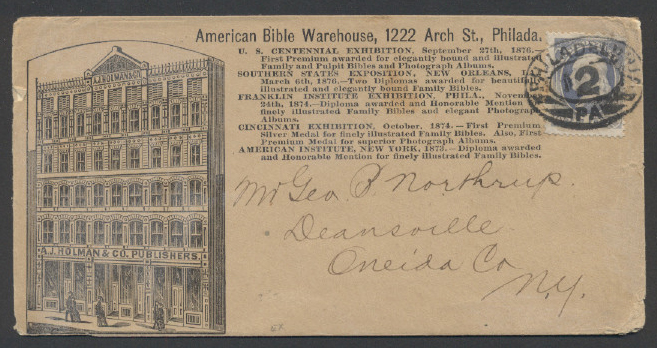 American Bible Warehouse, 1222 Arch St., Philada.
U. S. CENTENNIAL EXHIBITION, September 27th, 1876.—
First Premium awarded for elegantly bound and illustrated
Family and Pulpit Bibles and Photograph Albums.
SOUTHERN STATES EXPOSITION, NEW ORLEANS,
March 6th, 1876.—Two Diplomas awarded for beautifully
illustrated and elegantly bound Family Bibles.
FRANKLIN INSTITUTE EXHIBITION, PHILA., Novem
24th, 1874.—Diploma awarded and Honorable Mention
finely illustrated Family Bibles and elegant Photograph
Albums.
CINCINNATI EXHIBITION, October, 1874.—First Premium
Silver Medal for finely illustrated Family Bibles. Also, First
Premium Medal for superior Photograph Albums.
AMERICAN INSTITUTE, NEW YORK, 1873.—Diploma awarded
and Honorable Mention for finely illustrated Family Bibles.
PHILADELPHIA
2
PA
A.J. HOLMAN & CO.
A.J. HOLMAN & CO. PUBLISHERS.
Mr Geo. P. Northrup.
Deansville
Oneida Co
N.Y.